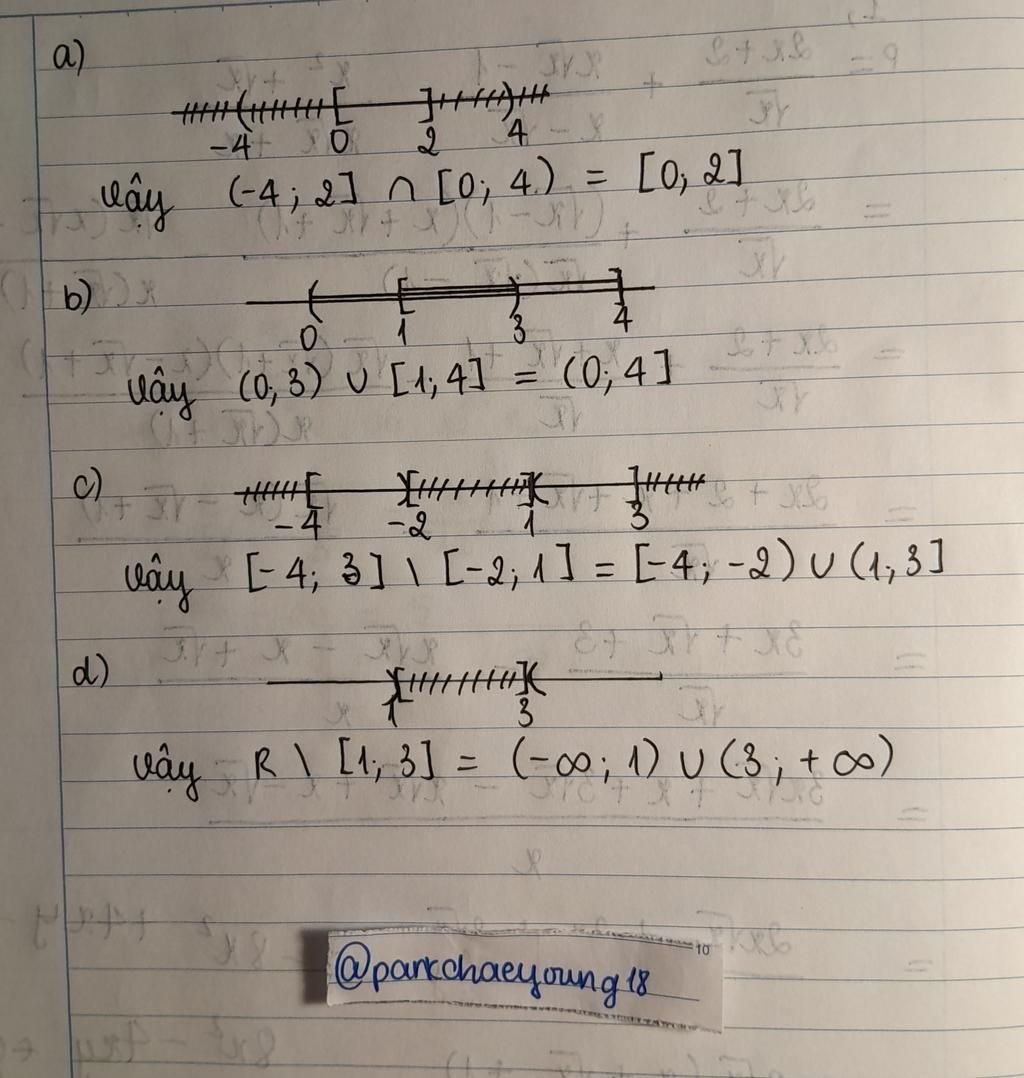 a)
-4 0 2 4
Vậy (-4; 2] ∩ [0; 4) = [0; 2]
b)
0 1 3 4
Vậy (0; 3) ∪ [1; 4] = (0; 4]
c)
-4 -2 1 3
Vậy [-4; 3] \ [-2; 1] = [-4; -2) ∪ (1; 3]
d)
1 3
Vậy R \ [1; 3] = (-∞; 1) ∪ (3; +∞)
10
@parkchaeyoung18